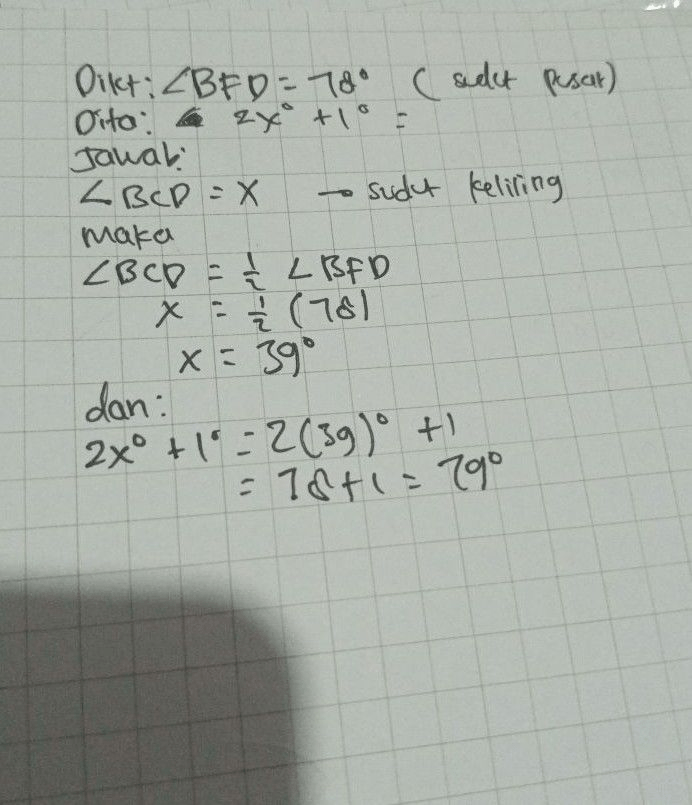 Dikt: ∠BFD = 78° (sudut pusat)
Dita: 2x° + 1° =
Jawab:
∠BCD = x → sudut keliring
maka
∠BCD = 1/2 ∠BFD
x = 1/2 (78)
x = 39°
dan:
2x° + 1° = 2(39)° + 1
= 78 + 1 = 79°